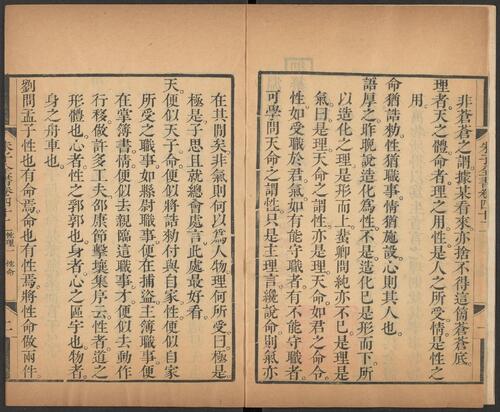 朱子全書卷四十二
非蒼蒼之謂據某看來亦捨不得這箇蒼蒼底。
理者天之體命者理之用性是人之所受情是性之
用。
命猶誥勑性猶職事情猶施設心則其人也。
語厚之昨晚說造化為性不是造化已是形而下所
以造化之理是形而上蜚卿問純亦不已是理是
氣曰是理天命之謂性亦是理天命如君之命令
性如受職於君氣如有能守職者有不能守職者。
可學問天命之謂性只是主理言纔說命則氣亦
在其閒矣非氣則何以為人物理何所受曰極是
極是子思且就總會處言此處最好看。
天便似天子命便似將誥勑付與自家性便似自家
所受之職事如縣尉職事便在捕盜主簿職事便
在掌簿書情便似去親臨這職事才便似去動作
行移做許多工夫邵康節擊壤集序云性者道之
形體也心者性之郛郭也身者心之區宇也物者
身之舟車也。
劉問孟子性也有命焉命也有性焉將性命做兩件
性命